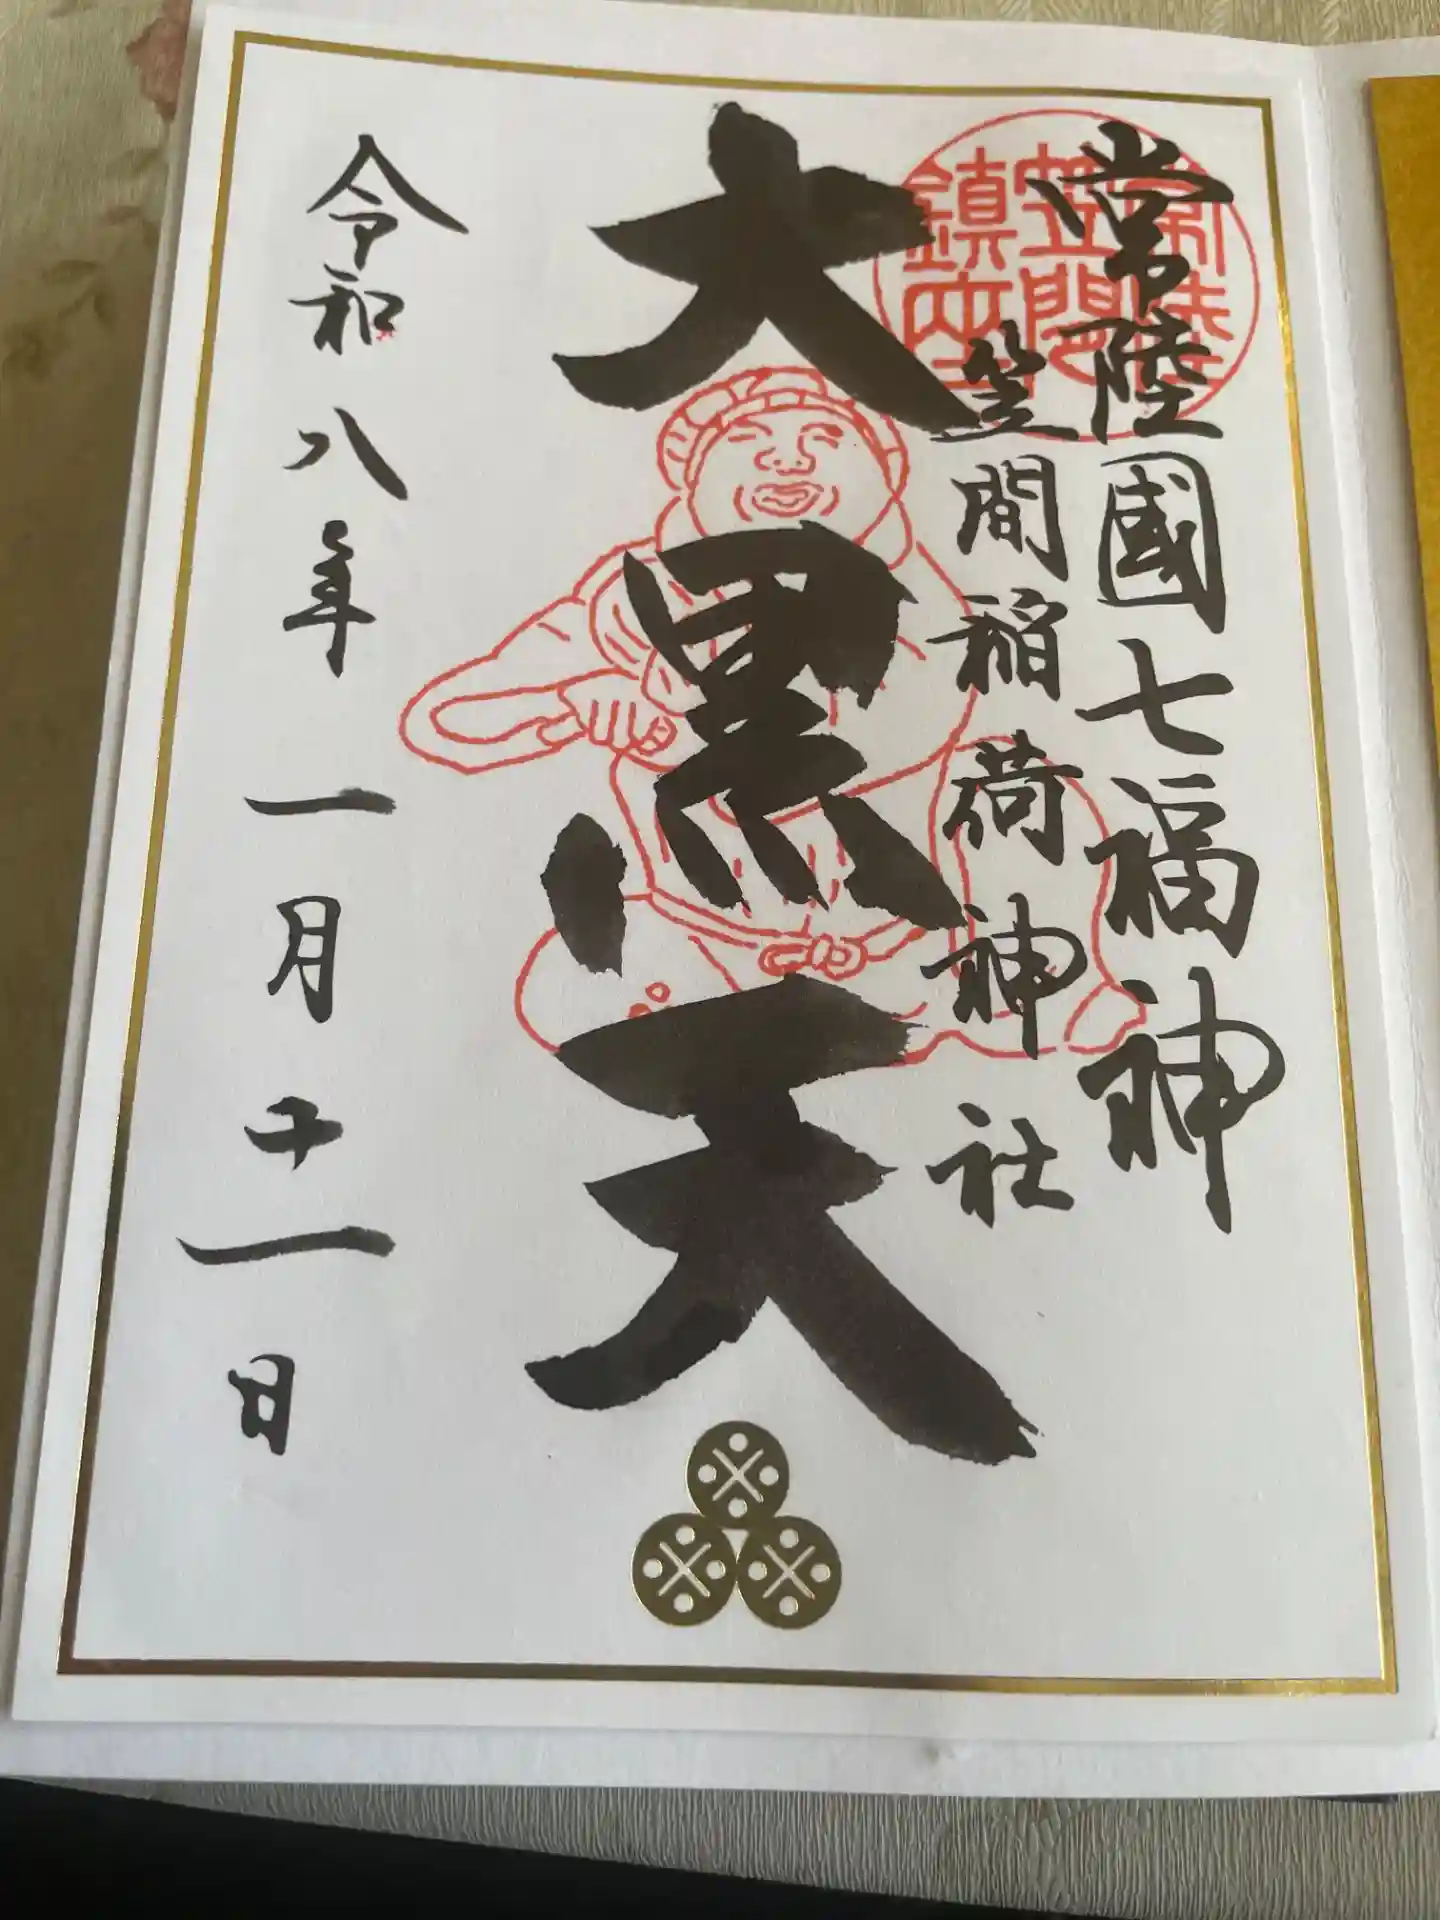 常陸國七福神
笠間稲荷神社
常陸
笠間
鎮座
大黒天
令和八年一月十一日